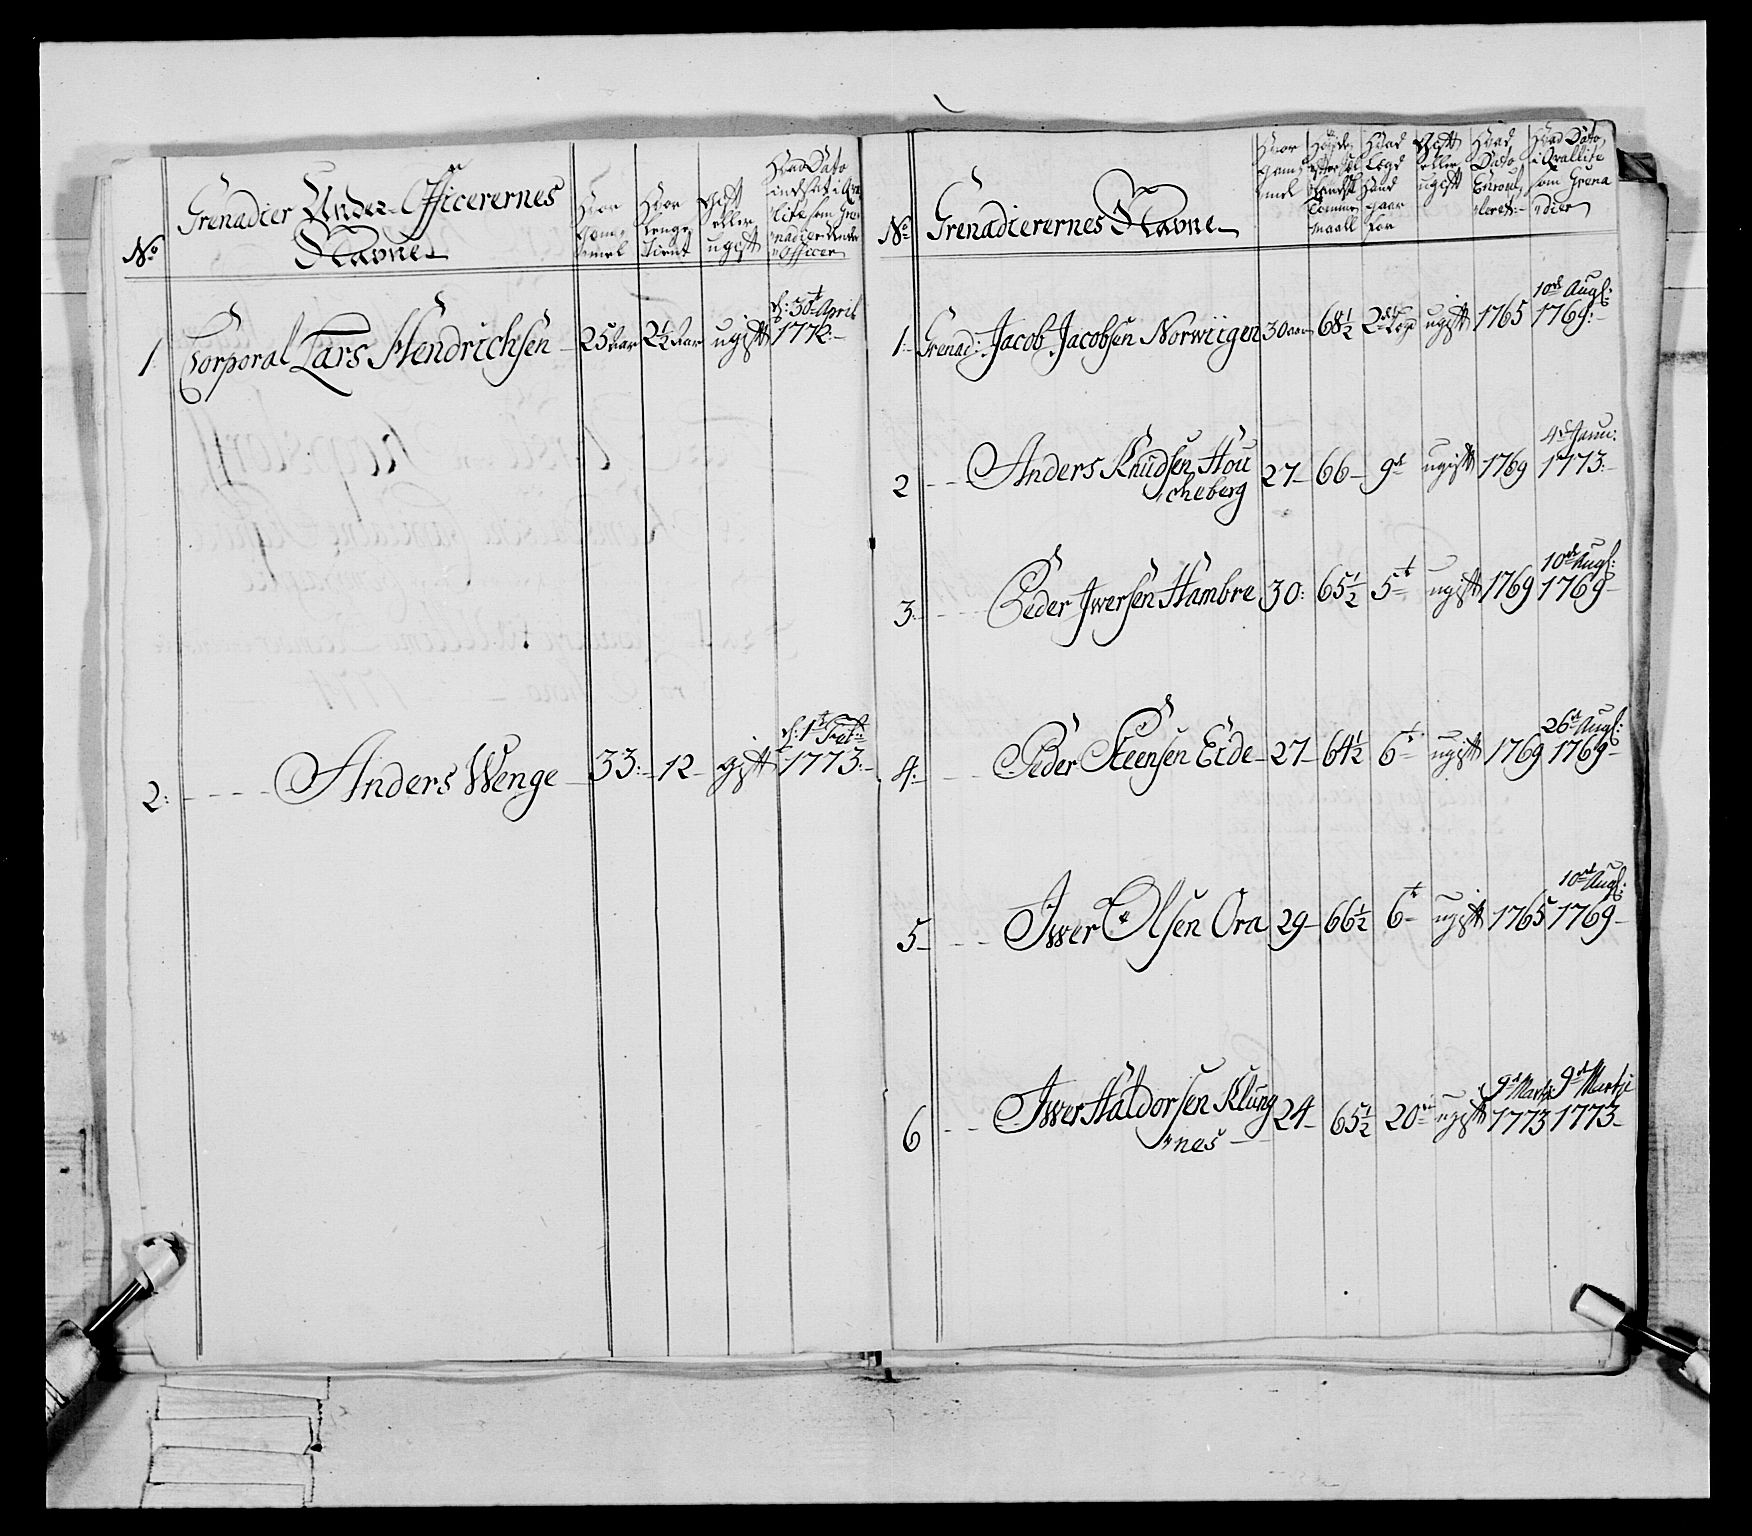 No
Grenadier Under-Officerernes
Navne
Hvor
gam-
mel
Hvor
lenge
tient
Gift
eller
ugift
Hvad Dato
indsat i Qva
lite som Gre
nadier Under
Officer
1. Corporal Lars Hendrichsen 25 aar 2½ aar ugift d: 30t April 1772:
2: Anders Wenge 33: 12 gift d: 1t Feb: 1773:
No
Grenadierernes Navne
Hvor
gam
mel
Høyde
efter
tomme
maall
Hvad
Legd
hand
staar
for
Gift
eller
ugift
Hvad
Dato
Enroul
leret
Hvad Dato
i Qvallite
som Grena
dier
1. Grenad: Jacob Jacobsen Norwiigen 30 aar 68½ 2d Legd ugift 1765 10de Augl: 1769:
2 Anders Knudsen Hou 27 66 9d ugift 1769 4d Janu: 1773:
cheberg
3: Peder Iwersen Hambre 30: 65½ 5t ugift 1769 10de Augl: 1769
4: Peder Steensen Eide 27 64½ 6t ugift 1769 26d Augl: 1769
5 Iwer Olsen Ora 29 66½ 6t ugift 1765 10de Augl: 1769
6 Iwer Haldorsen Klung 24 65½ 20de ugift 9d Martji 1773 9d Martji 1773
nes